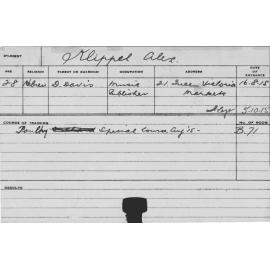 STUDENT Klippel Alex.
AGE RELIGION PARENT OR GUARDIAN OCCUPATION ADDRESS DATE OF ENTRANCE
28 Hebrew D. Davis Music 21 Queen Victoria 16-8-15
Publisher Markets
5.10.15
COURSE OF TRAINING No. OF ROOM
Poultry Special Course Aug '15- B.71
RESULTS